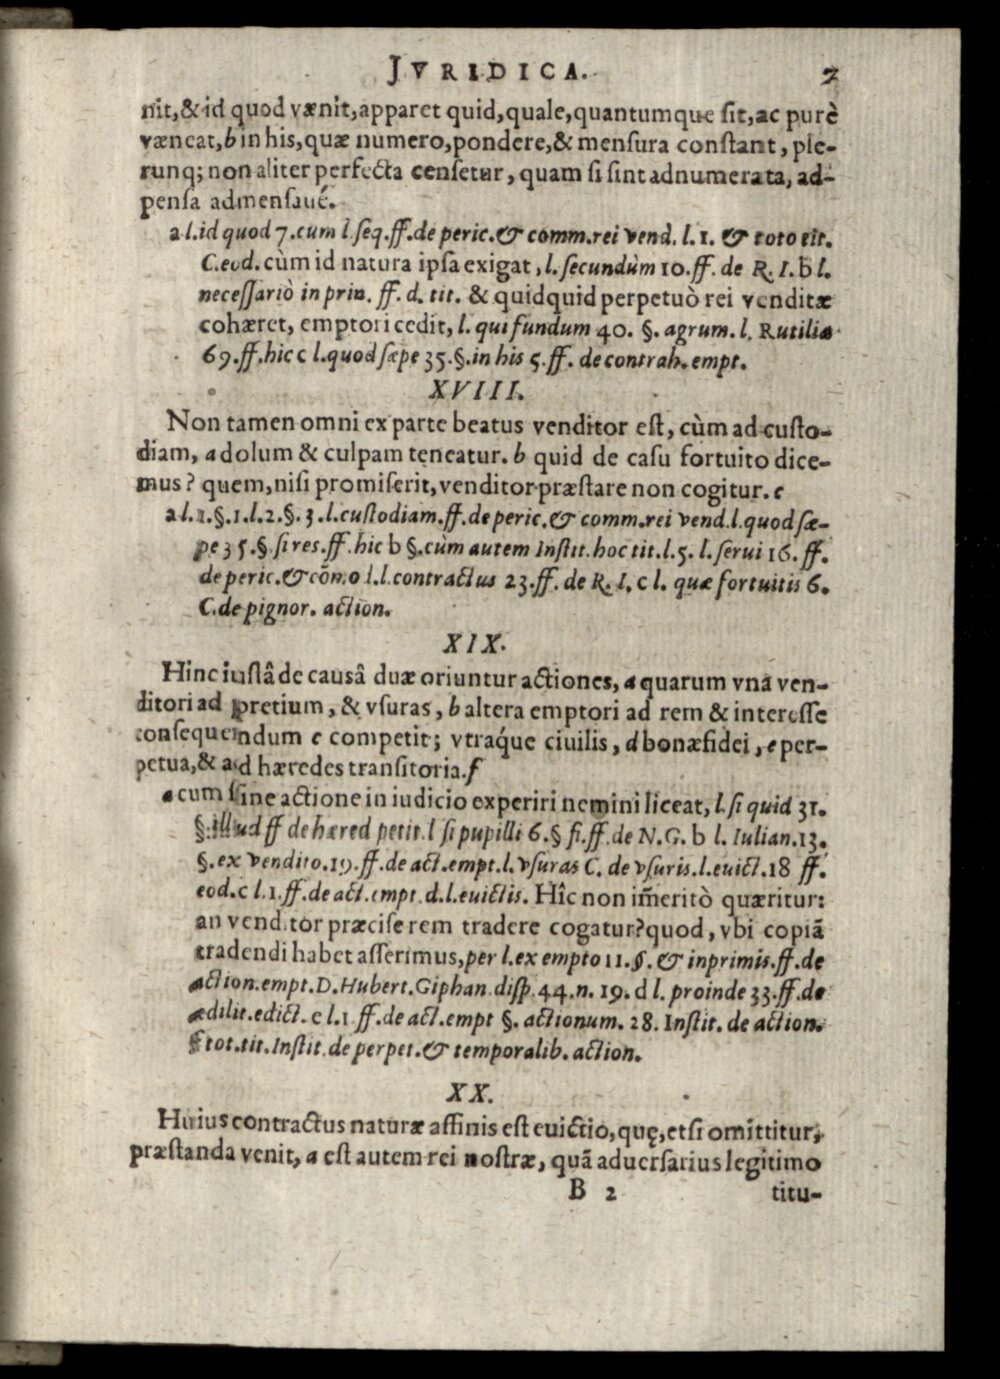 JVRIDICA. 7
nit,&id quod vænit,apparet quid,quale,quantumque ſit,ac purè
væneat,b in his,quæ numero,pondere,& menſura conſtant, ple-
runq; non aliter perfecta cenſetur, quam ſi ſint adnumerata, ad-
penſa admenſaué.
a l.id quod 7.cum l ſeq.ff.de peric.& comm.rei vend. l.1. & toto tit.
C.eod. cùm id natura ipſa exigat, l. ſecundùm 10.ff. de R. I. b l.
neceſſariò in prin. ff. d. tit. & quidquid perpetuò rei venditæ
cohæret, emptori cedit, l. qui fundum 40. §. agrum. l. Rutilia
69.ff.hic c l.quod ſæpe 35.§.in his 5.ff. de contrah. empt.
XVIII.
Non tamen omni ex parte beatus venditor eſt, cùm ad cuſto-
diam, a dolum & culpam teneatur. b quid de caſu fortuito dice-
mus? quem,niſi promiſerit,venditor præſtare non cogitur. c
a l.1.§.1.l.2.§.3.l.cuſtodiam.ff.de peric.& comm.rei vend.l.quod ſæ-
pe 35.§ ſi res.ff.hic b §.cùm autem Inſtit.hoc tit.l.5. l.ſerui 16. ff.
de peric.&cõm.o l.l.contractus 23.ff. de R. I. c l. quæ fortuitis 6.
C.de pignor. action.
XIX.
Hinc iuſtâ de causâ duæ oriuntur actiones, a quarum vna ven-
ditori ad pretium, & vſuras, b altera emptori ad rem & intereſſe
conſequendum c competit; vtraq́ue ciuilis, d bonæfidei, e per-
petua,& ad hæredes tranſitoria.f
a cum ſine actione in iudicio experiri nemini liceat, l.ſi quid 31.
§.illud ff de hæred petit.l ſi pupilli 6.§ ſi.ff.de N.G. b l. Iulian.13.
§.ex vendito.19.ff.de act.empt.l.vſuras C. de vſuris.l.euict.18 ff.
eod.c l.1.ff.de act.empt.d.l.euictis. Hîc non im̃eritò quæritur:
an venditor præciſe rem tradere cogatur?quod, vbi copiã
tradendi habet aſſerimus,per l.ex empto 11.§. & inprimis.ff.de
action.empt.D.Hubert.Giphan diſp.44.n.19. d l. proinde 33.ff.de
ædilit.edict. e l.1 ff.de act.empt §. actionum. 28. Inſtit. de action.
f tot.tit.Inſtit.de perpet.& temporalib. action.
XX.
Huius contractus naturæ affinis eſt euictio,quę,etſi omittitur,
præſtanda venit, a eſt autem rei noſtræ, quã aduerſarius legitimo
B 2 titu-